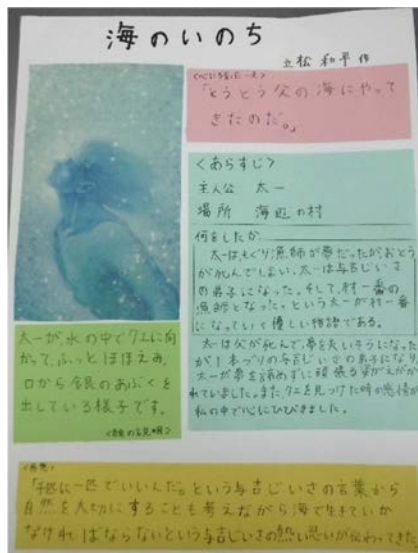 海のいのち
立松和平 作
〈心に残った一文〉
「とうとう父の海にやって
きたのだ。」
〈あらすじ〉
主人公 太一
場所 海辺の村
何をしたか
太一はもぐり漁師が夢だったがおとう
が死んでしまい、太一は与吉じいさ
の弟子になった。そして、村一番の
漁師となった。という太一が村一番
になっていく優しい物語である。
太一は父が死んで、夢を失いそうになった
が1本づりの与吉じいさの弟子になり、
太一が夢を諦めずに頑張る姿がえがか
れていました。また、クエを見つけた時の感情が
私の中で心にひびきました。
太一が水の中でクエに向
かって、ふっとほほえみ、
口から銀のあぶくを
出している様子です。
〈絵の説明〉
〈感想〉
「千びきに一匹でいいんだ。」という与吉じいさの言葉から
自然を大切にすることも考えながら海で生きていか
なければならないという与吉じいさの熱い思いが伝わってきた